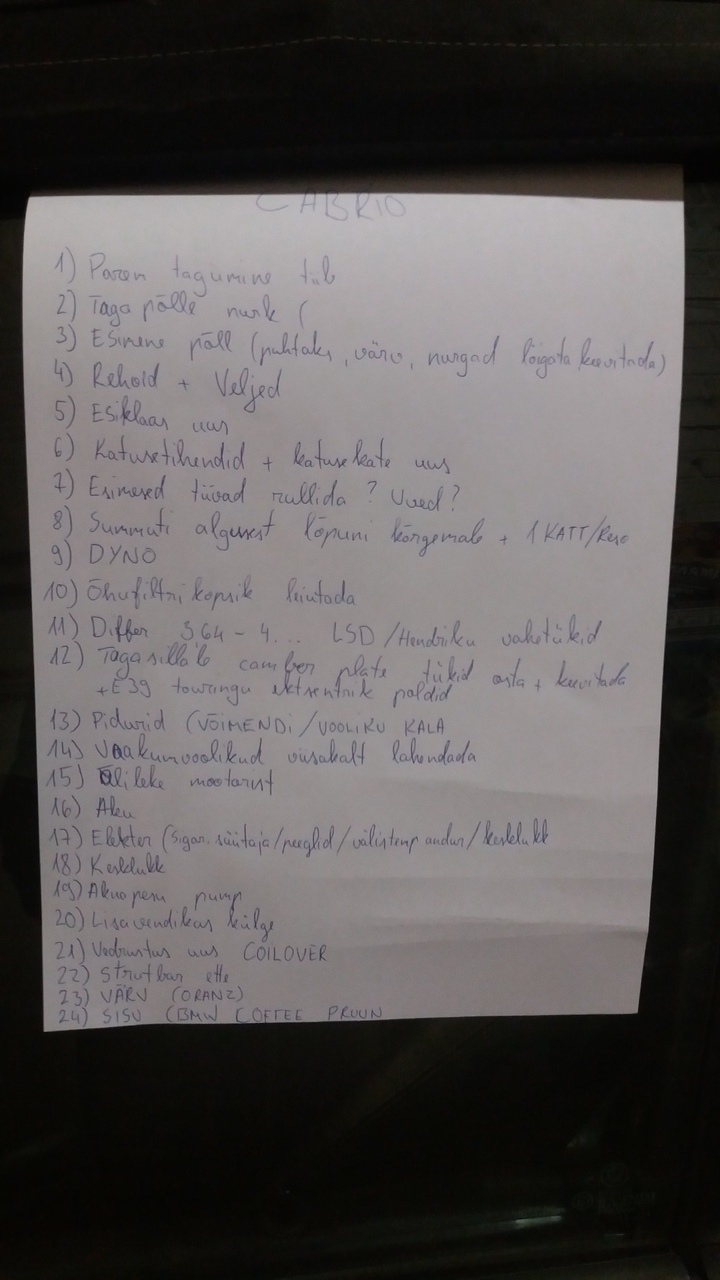 CABRIO
1) Parem tagumine tiib
2) Taga põlle nurk (
3) Esimene põll (puhtaks, värv, nurgad lõigata keevitada)
4) Rehvid + Veljed
5) Esiklaas uus
6) Katusetihendid + katusekate uus
7) Esimesed tiivad rullida? Uued?
8) Summuti algusest lõpuni kõrgemale + 1 KATT/Reso
9) DYNO
10) Õhufiltri kopsik leiutada
11) Differ 3,64 - 4... LSD/Hendriku vahetükid
12) Tagasilla'le camber plate tükid osta + keevitada
+ E39 touringu ektsentrik poldid
13) Pidurid (VÕIMENDI/VOOLIKU KALA
14) Vaakumvoolikud viisakalt lahendada
15) Õlileke mootorist
16) Aku
17) Elekter (Sigar. süütaja/peeglid/välistemp andur/kesklukk
18) Kesklukk
19) Aknapesu pump
20) Lisavendikas külge
21) Vedrustus uus COILOVER
22) Strutbar ette
23) VÄRV (ORANZ)
24) SISU (BMW COFFEE PRUUN